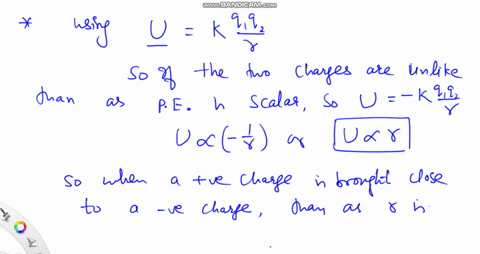 WWW.BANDICAM.COM
* using U = K q₁q₂/r
So if the two charges are unlike
than as P.E. is scalar, so U = -K q₁q₂/r
U ∝ (-1/r) or U ∝ r
so when a +ve charge is brought close
to a -ve charge, than as r is